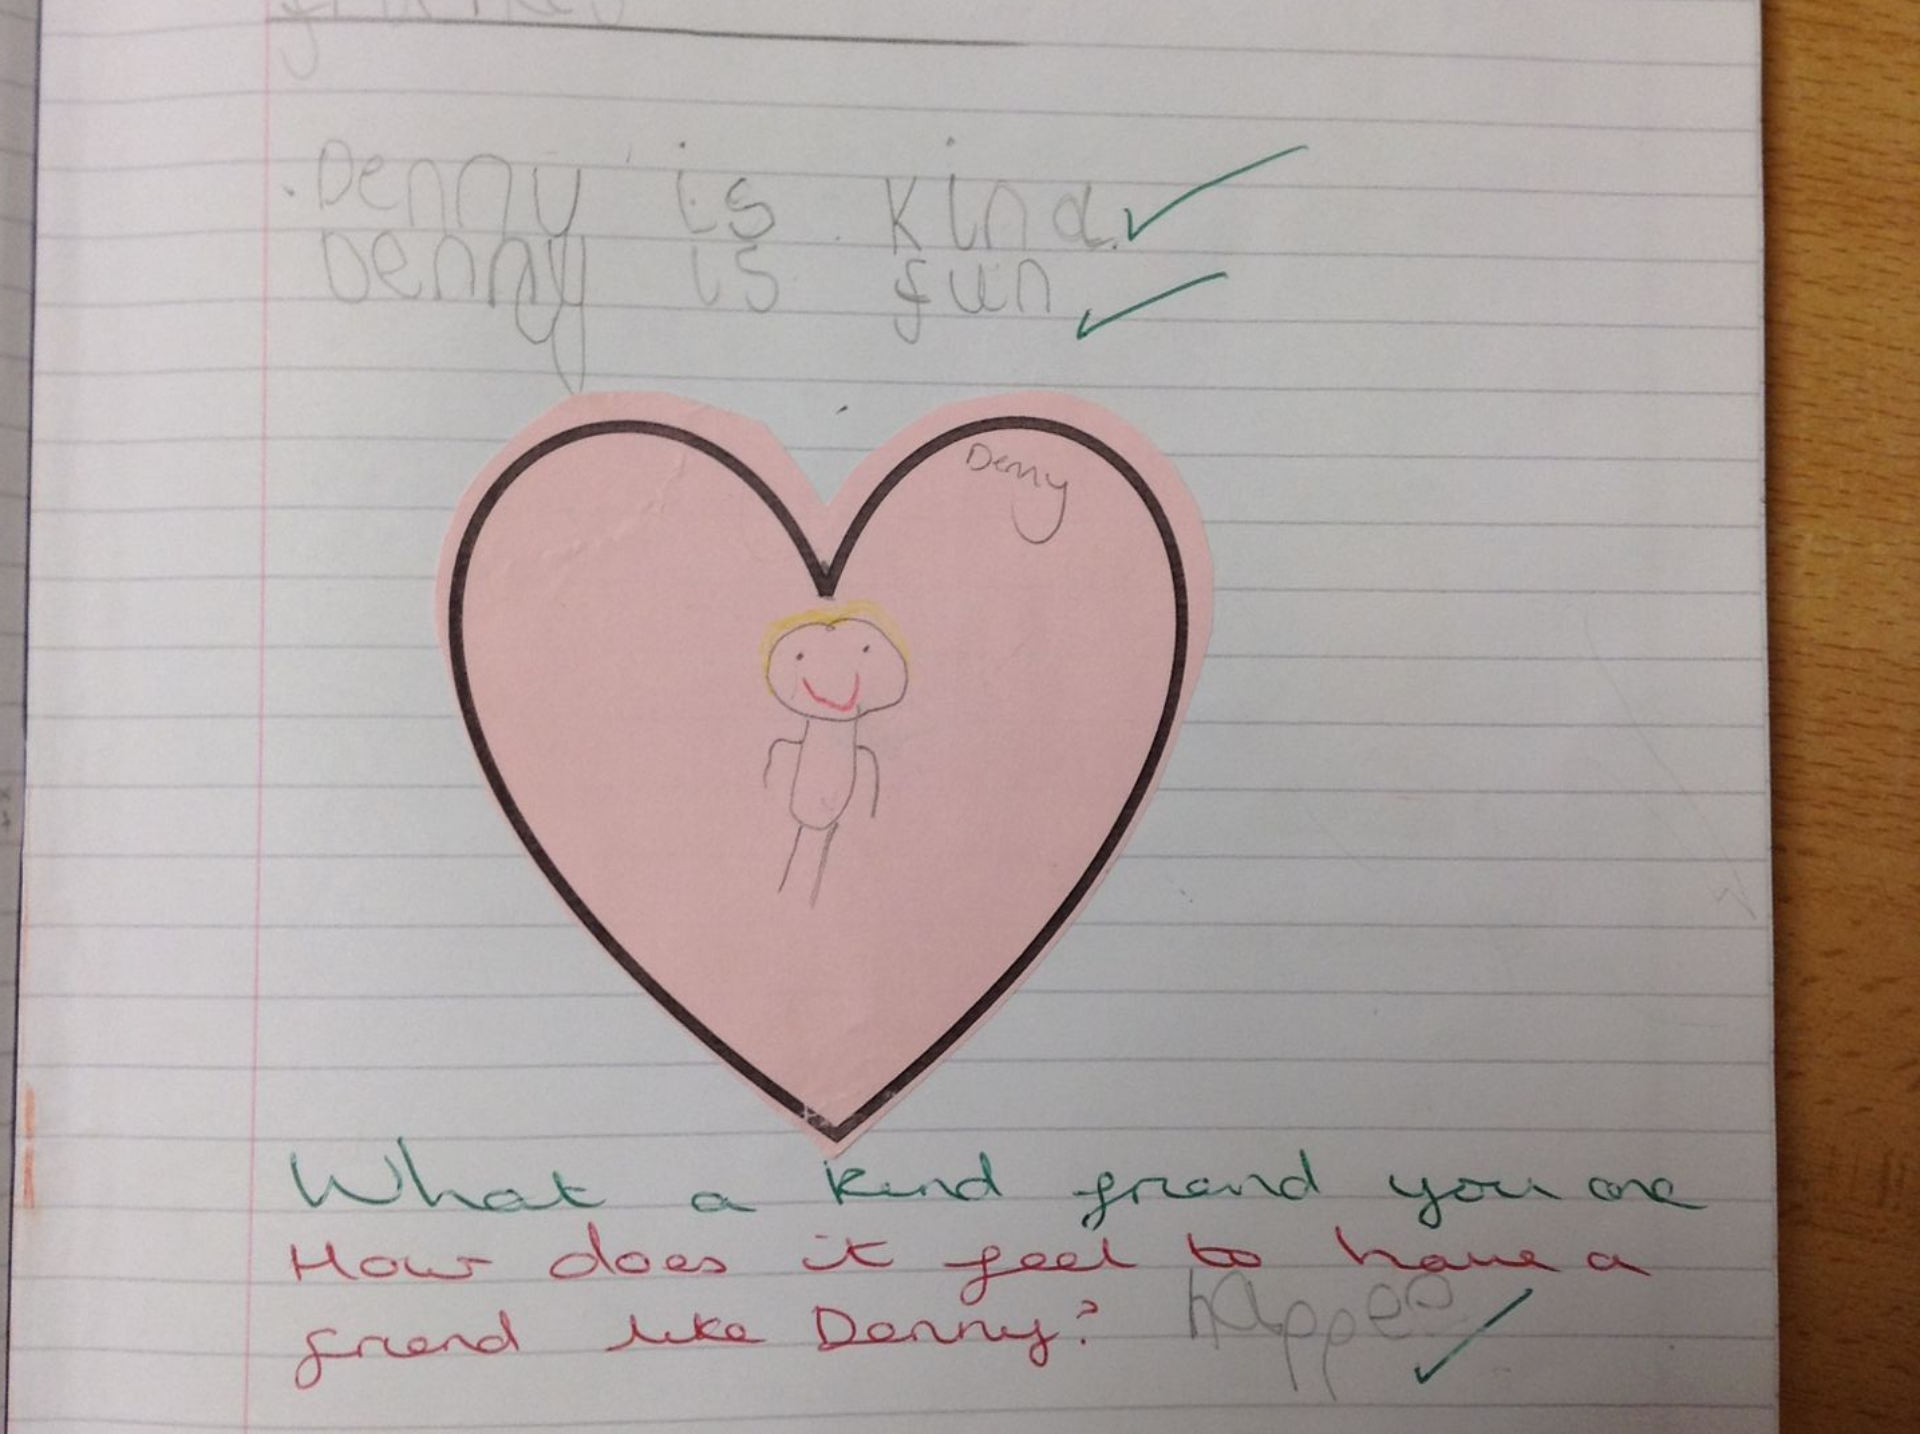 Denny is kind.
Denny is fun
Denny
What a kind friend you are
How does it feel to have a
friend like Denny? happee